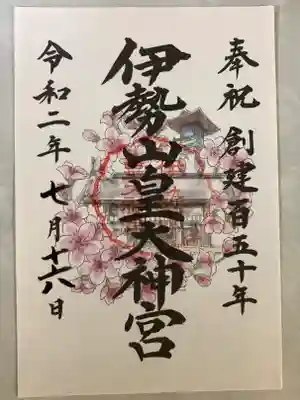 奉祝 創建百五十年
伊勢山皇大神宮
令和二年 七月十六日